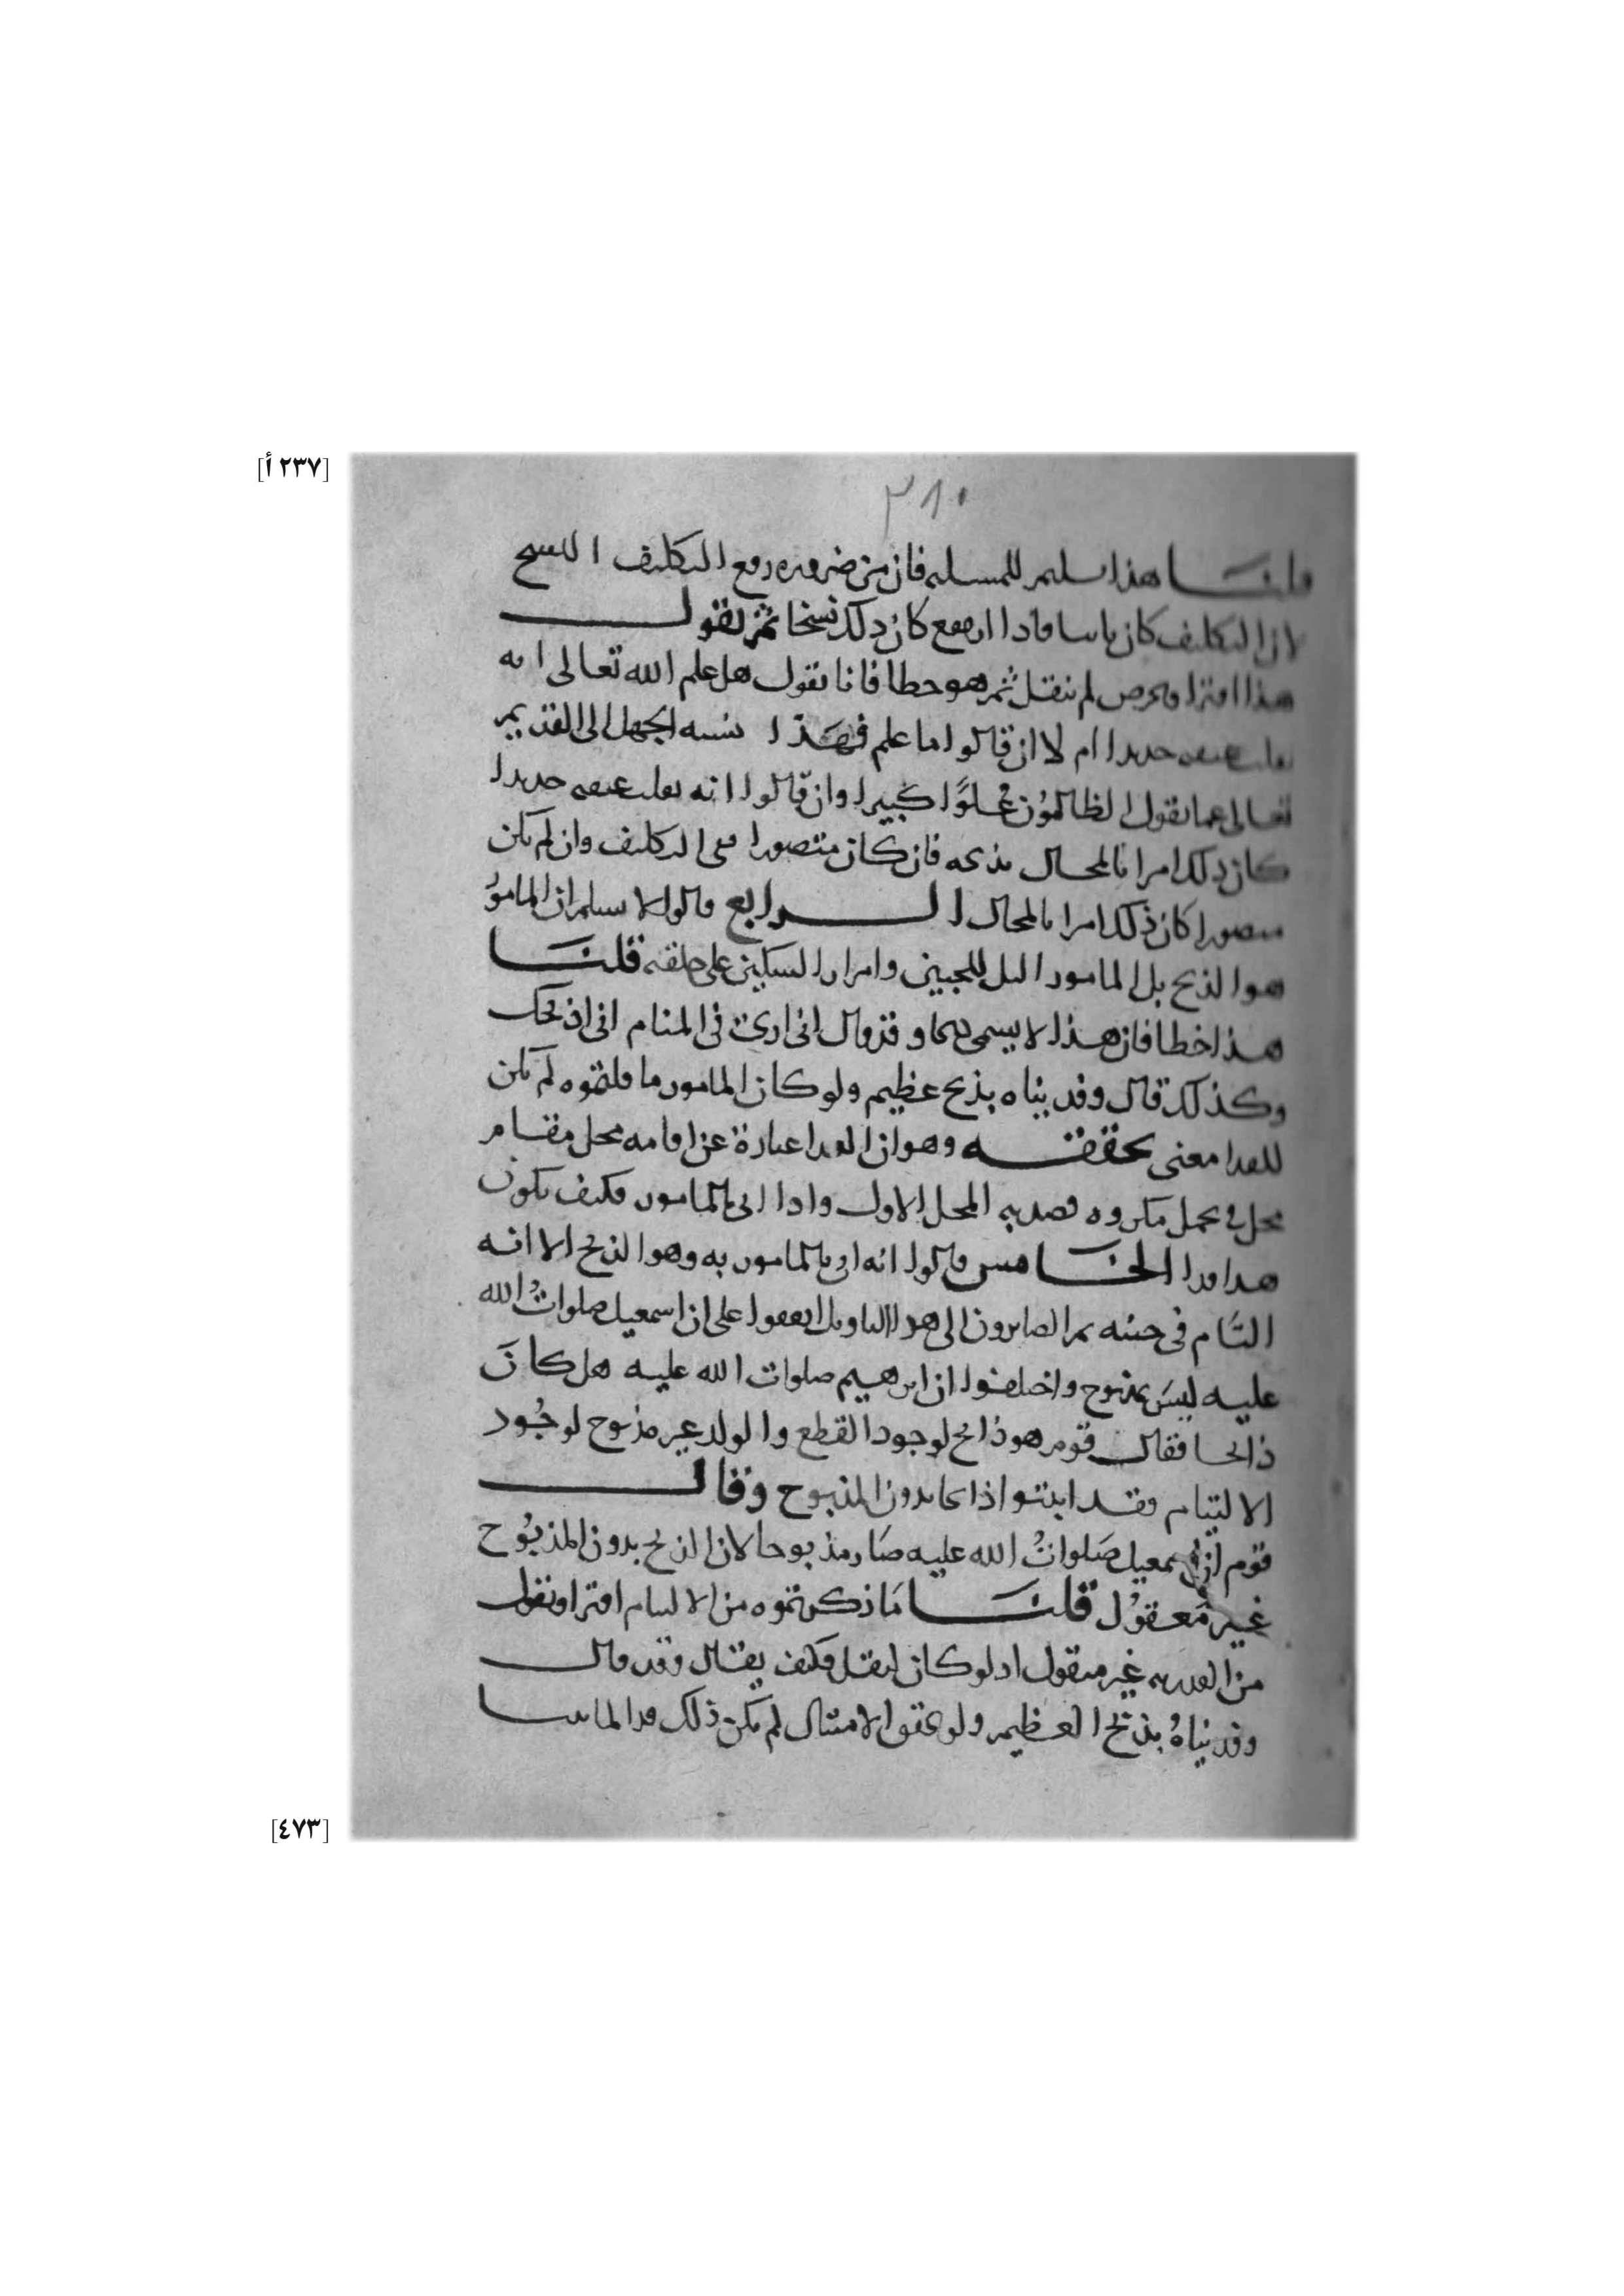 [٢٣٧ أ]
٣١٠
قلنا هذا تسليم للمسله فان من ضروره رفع التكليف النسخ
لان التكليف كان ثابتا فاذا ارتفع كان ذلك نسخا ثم نقول
هذا افترا وتخرص لم ينقل ثم هو خطا فانا نقول هل علم الله تعالى انه
تقلب عنقه حديدا ام لا ان قالوا ما علم فهذا نسبه الجهل الى القديم
تعالى عما يقول الظالمون علوًّا كبيرا وان قالوا انه تقلب عنقه حديدا
كان ذلك امرا بالمحال بذبحه فان كان متصورا بقى التكليف وان لم يكن
متصورا كان ذلك امرا بالمحال الرابع قالوا لا نسلم ان المامور
هو الذبح بل المامور التل للجبين وامرار السكين على حلقه قلنا
هذا خطا فان هذا لا يسمى ذبحا وقد قال انى ارى فى المنام انى اذبحك
وكذلك قال وفديناه بذبح عظيم ولو كان المامور ما قلتموه لم يكن
للفدا معنى تحققه وهو ان الفدا عبارة عن اقامه محل مقام
محل فى تحمل مكروه قصد به المحل الاول واذا اتى بالمامور فكيف يكون
هذا فدا الخامس قالوا انه اتى بالمامور به وهو الذبح الا انه
التام فى حينه ثم الصابرون الى هذا التاويل اتفقوا على ان اسمعيل صلواتُ الله
عليه ليس بمذبوح واختلفوا ان ابرهيم صلوات الله عليه هل كان
ذابحا فقال قوم هو ذابح لوجود القطع والولد غير مذبوح لوجُود
الالتيام وقد اثبتوا ذابحا بدون المذبوح وقال
قوم ان اسمعيل صَلواتُ الله عليه صار مذبوحا لان الذبح بدون المذبُوح
غير مَعقوُل قلنا مَا ذكرتموه من الالتيام افترا وتقول
من القدريه غير منقول اذ لو كان لنقل فكيف يقال وقد قال
وفديناهُ بذبح العظيم ولو تحقق الامتثال لم يكن ذلك فدا لما بينا
[٤٧٣]